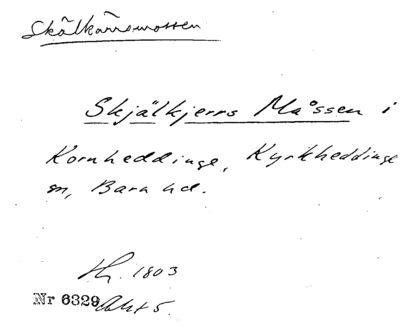 Skälkärrsmossen
Skjälkjerrs Måssen i
Kornheddinge, Kyrkheddinge
sn, Bara hd.
1803
Nr 6329 Akt 5.